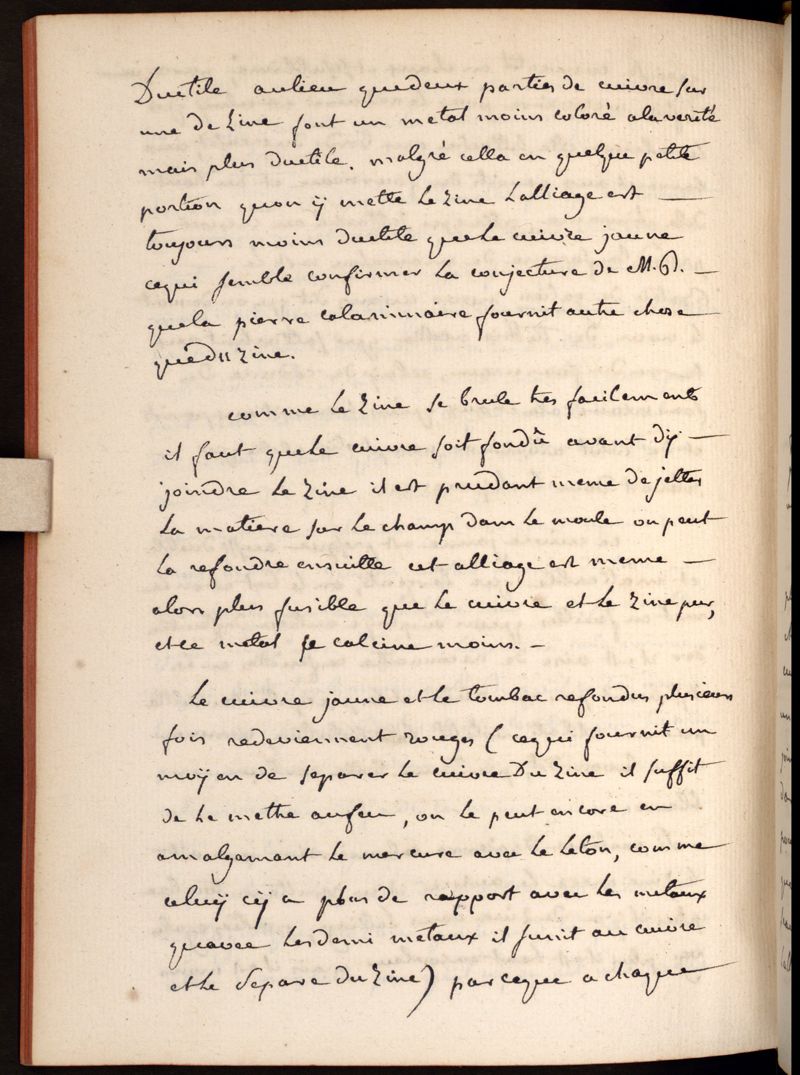 Ductile aulieu quedeux parties de cuivre sur
une de Zinc font un metal moins coloré alaverité
mais plus ductile. malgré cella en quelque petite
portion quon ÿ mette le Zinc Lalliage est —
toujours moins ductile quele cuivre jaune
cequi semble confirmer la conjecture de M. P. —
quela pierre calaminaire fournit autre chose
quedu Zinc.
comme le Zinc se brule tres facilement
il faut quele cuivre soit fondû avant dÿ —
joindre le Zinc il est prudant meme de jetter
la matiere sur le champ dans le moule on peut
la refondre ensuitte cet alliage est meme —
alors plus fusible que le cuivre et le Zinc pur,
et ce metal se calcine moins. —
Le cuivre jaune et le tombac refondus plusieurs
fois redeviennent rouges ( cequi fournit un
moÿen de separer le cuivre Du Zinc il suffit
de le mettre aufeu, on le peut encore en
amalgamant le mercure avec le leton, comme
celuÿ cÿ a plus de rapport avec les metaux
quavec lesdemi metaux il sunit au cuivre
et le separe du Zinc ) parceque a chaque